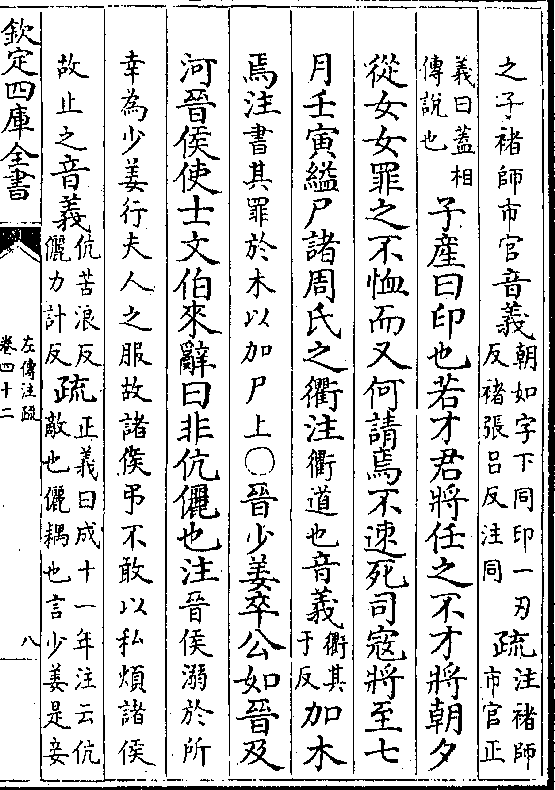 之子褚師市官音義朝如字下同印一刃反褚張呂反注同疏注褚師市官正
義曰蓋相傳說也子産曰印也若才君將任之不才將朝夕
從女女罪之不恤而又何請焉不速死司寇將至七
月壬寅縊尸諸周氏之衢注衢道也音義衢其于反加木
焉注書其罪於木以加尸上○晉少姜卒公如晉及
河晉侯使士文伯來辭曰非伉儷也注晉侯溺於所
幸為少姜行夫人之服故諸侯弔不敢以私煩諸侯
故止之音義伉苦浪反儷力計反疏正義曰成十一年注云伉敵也儷耦也言少姜是妾
欽定四庫全書
左傳注疏
卷四十二
八